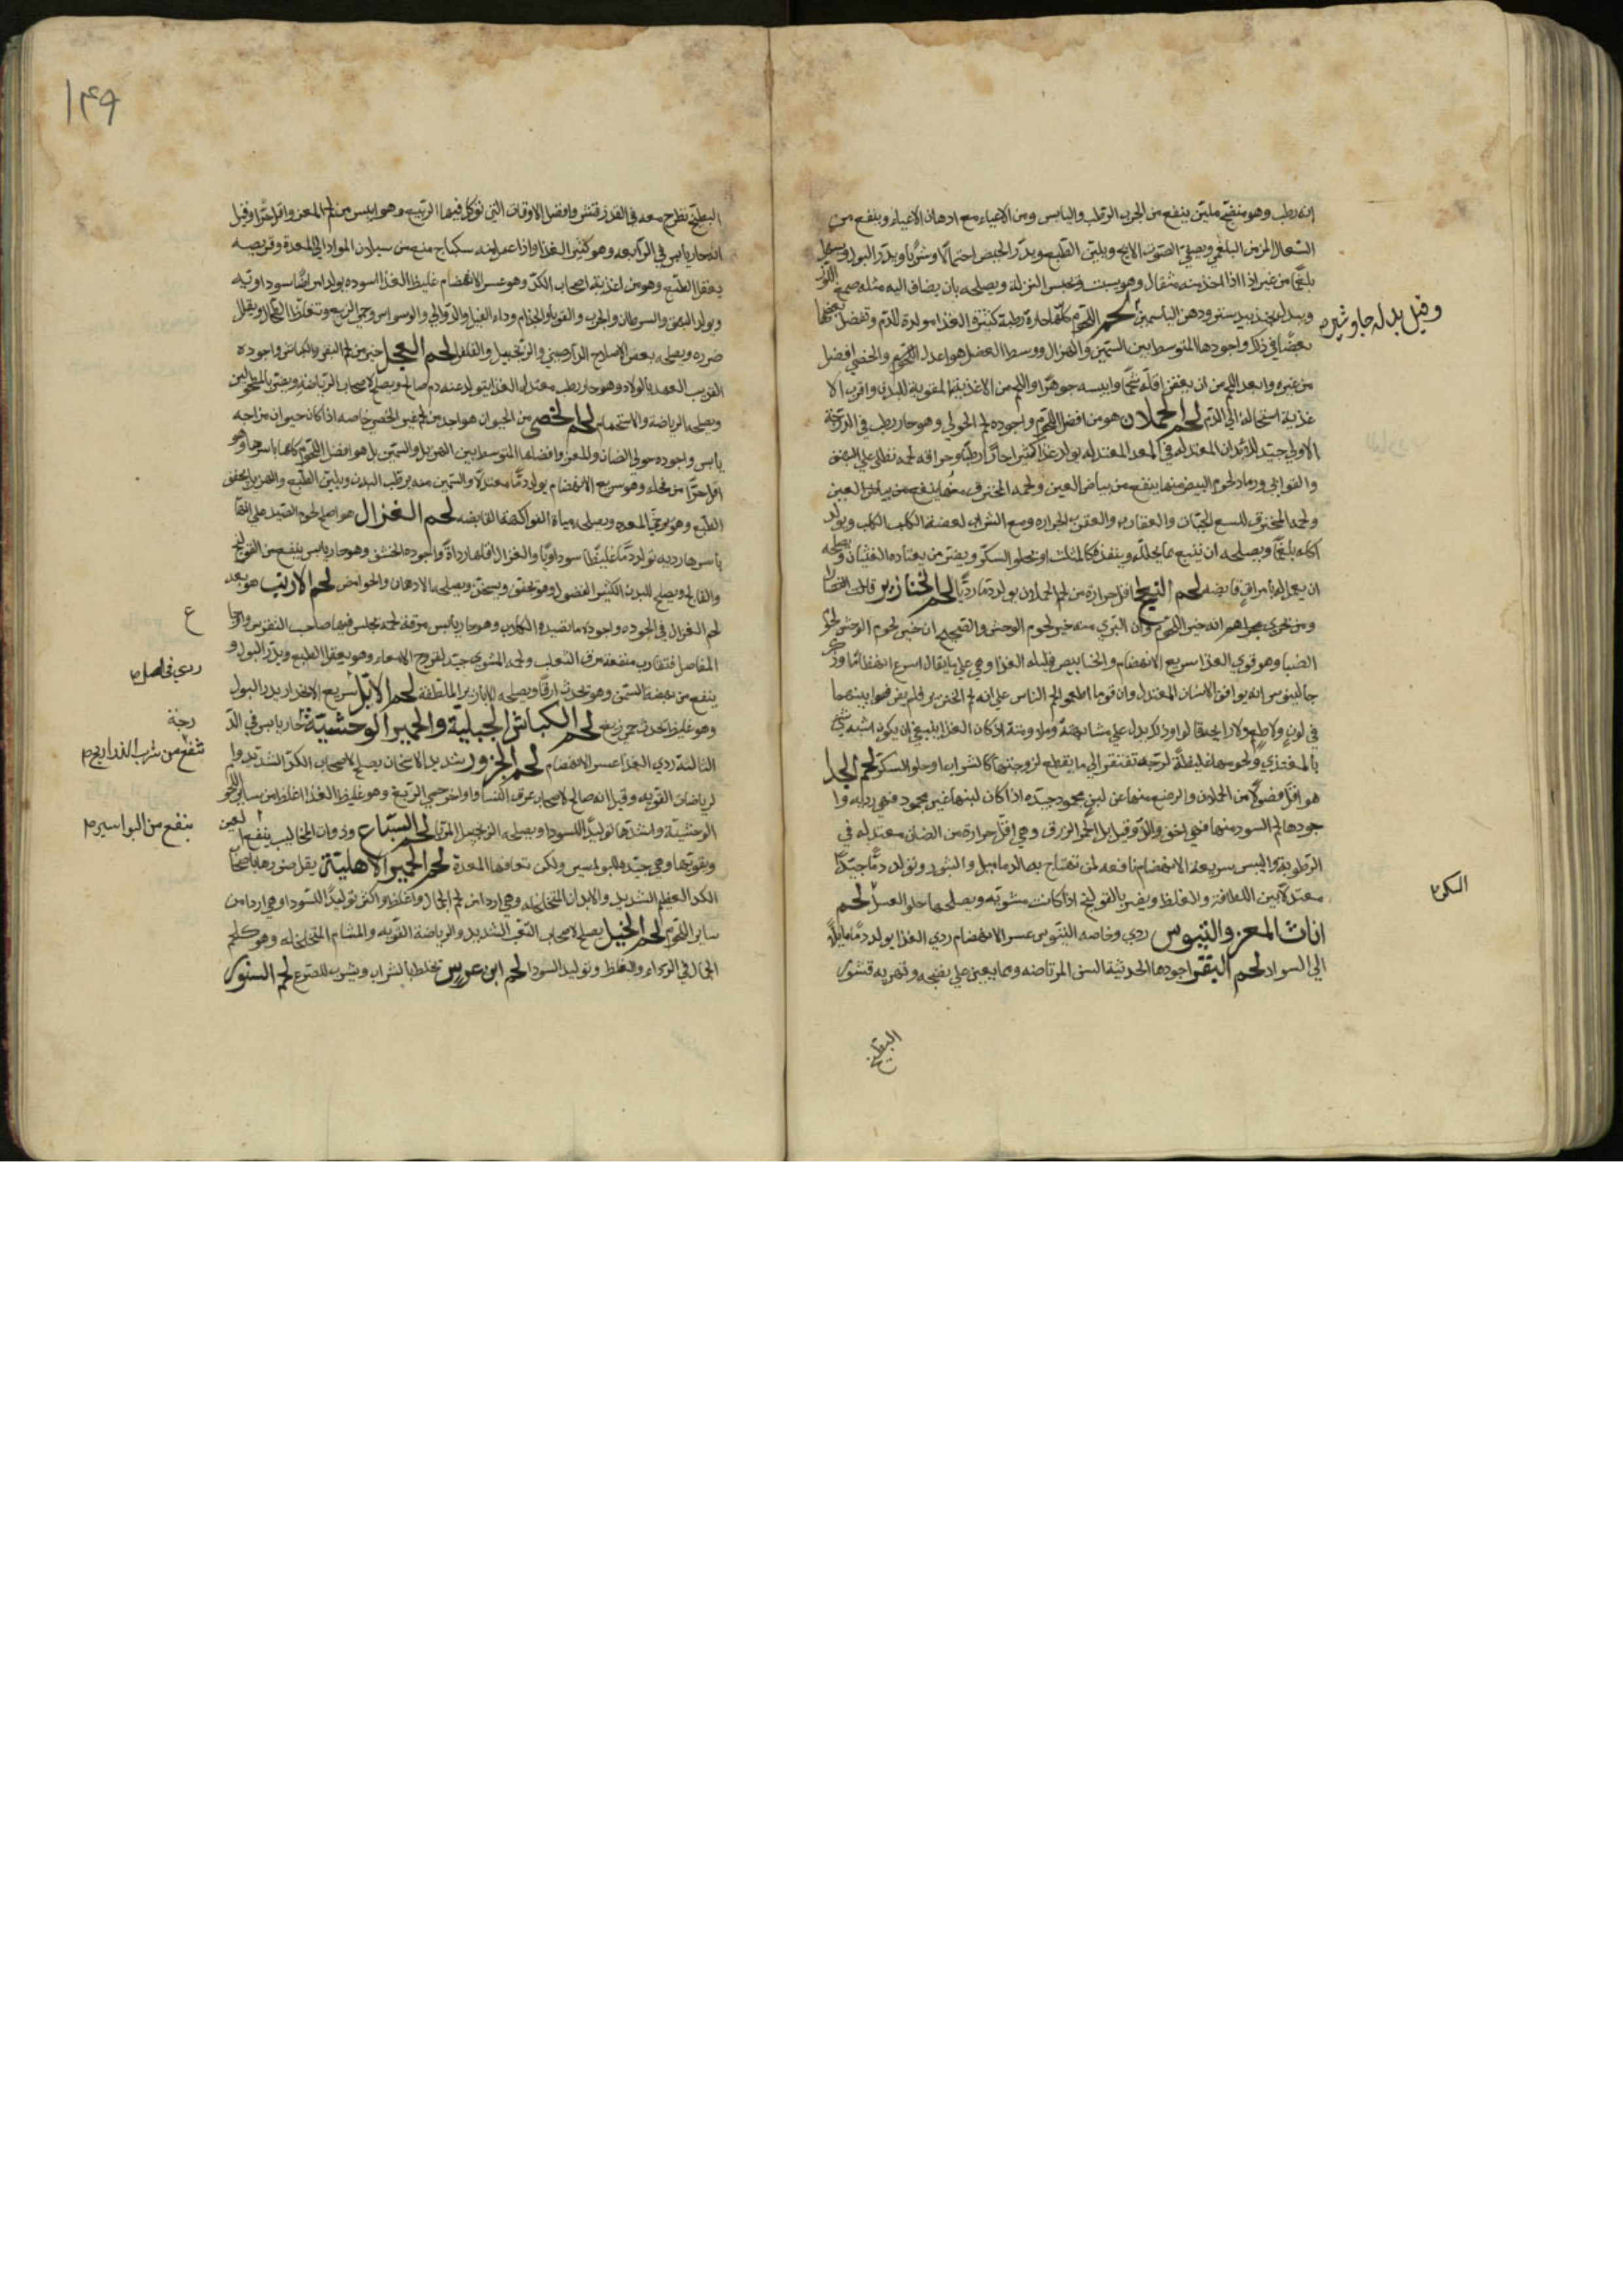 انه رطب وهو منقي ملين ينفع من الجرب الرطب واليابس ومن الاعياء مع ادهان الاعياء وينفع من
السعال المزمن البلغمي ويصفي الصوت الابح ويلين الطبع ويدر الحيض احتمالا وشربا ويدر البول ويسهل
بلغما من غير اذا اذا اخذ منه مثقال وهو يسبت ويحبس النزلة ويصلحه بان يضاف اليه مثله صمغ اللوز
وبدله جندبيدستر ودهن الياسمين لحم اللحوم كلها حارة رطبة كثيرة الغذا مولدة للدم وتفضل بعضها
وقيل بدله جاوشير
بعضا في ذلك واجودها المتوسط بين السمين والهزال ووسط العضل هو اعدل اللحوم والخصي افضل
من غيره وابعد اللحم من ان يعفن اقله شحما وايبسه جوهرا واللحم من الاغذية المقوية للبدن واقرب الا
غذية استحالة الى الدم لحم الحملان هو من افضل اللحوم واجوده لحم الحولي وهو حار رطب في الدرجة
الاولى جيد للابدان المعتدلة في المعد المعتدله يولد غذا كثيرا حارا رطبا وحراقة لحمه تطلى على البهق
والقوابي ورماد لحوم البيض منها ينفع من بياض العين ولحمه المحترق منها ينفع من بياض العين
ولحمه المحترق للسع الحيات والعقارب والعقرب الجراره ومع الشراب لعضة الكلب الكلب ويولد
اكله بلغما ويصلحه ان يتبع بما يحلله وينفذه كالمثلث او بحلو السكر ويضر من يعتاده الغثيان ويصلحه
ان يعمل له بامراق قابضه لحم النعاج اقل حرارة من لحم الحملان يولد دما رديا لحم الخنازير قالت النصارى
ومن يجري مجراهم انه خير اللحوم وان البري منه خير لحوم الوحش والصحيح ان خير لحوم الوحش لحوم
الضبا وهو قوي الغذا سريع الانهضام والخنانيص قليلة الغذا وهي على ما يقال اسرع انهضاما وذكر
جالينوس انه يوافق الانسان المعتدل وان قوما اطعموا لحم الناس على انه لحم الخنزير فلم يفرقوا بينهما
في لون ولا طعم ولا رايحة قالوا وذلك يدل على مشابهته وملاومته اذ كان الغذا ينبغي ان يكون اشبه شي
بالمغتذي ولحومها غليظة لزجة تفتقر الى ما يقطع لزوجتها كالشراب او حلو السكر لحم الجدا
هو اقل فضولا من الحملان والرضيع منها عن لبن محمود جيده اذا كان لبنها غير محمود فهي رديه وا
جودها لحم السود منها فهي اخف والذ وقيل بل الحمر الزرق وهي اقل حرارة من الضان معتدله في
الرطوبة واليبس سريعة الانهضام نافعه لمن تهتاج به الدماميل والبثور ويولد دما جيدا
معتدلا بين اللطافة والغلظ ويضر بالقولنج اذا كانت مشويه ويصلحها حلو العسل لحم
السكر
اناث المعز والتيوس ردي وخاصه التيوس عسر الانهضام ردي الغذا يولد دما مايلا
الى السواد لحم البقر اجودها الحديثة السن المرتاضه ومما يعين على نضجه وتهريه قشور
البطيخ
149
البطيخ تطرح معه في القدر قشر وافضل الاوقات التي توكل فيها الربيع وهو ايبس من لحم المعز واقل حرا وقيل
انه حار يابس في الرابعه وهو كثير الغذا واذا عمل منه سكباج منع من سيلان المواد الى المعدة وقريصه
يعقل الطبع وهو من اغذية اصحاب الكد وهو عسر الانهضام غليظ الغذا اسوده يولد امراضا سوداويه
ويولد البهق والسرطان والجرب والقوبا والجذام وداء الفيل والدوالي والوسواس وحمى الربع وتغلظ الطحال ويقلل
ضرره ويصلحه بعض الاصلاح الدارصيني والزنجبيل والفلفل لحم العجل خير من لحم البقر والكباش واجوده
القريب العهد بالولاد وهو حار رطب معتدل الغذا يتولد عنه دم صالح ويصلح لاصحاب الرياضة ويضر بالمطحولين
ويصلحه الرياضة والاستحمام لحم الخصي من الحيوان هو اجد من لحم غير الخصي خاصه اذا كان حيوان مزاجه
يابس واجوده حولي الضان والمعز وافضلها المتوسط بين الهزيل والسمين بل هو افضل اللحوم كلها باسرها وهو
اقل حرا من فحله وهو سريع الانهضام يولد دما معتدلا والسمين منه يرطب البدن ويلين الطبع والهزيل يجفف
الطبع وهو يرخي المعده ويصلحه مياه الفواكه القابضه لحم الغزال هو اصلح لحوم الصيد على انها
باسرها رديه تولد دما غليظا سوداويا والغزال اقلها رداة واجوده الخشف وهو حار يابس ينفع من القولنج
والفالج ويصلح للبدن الكثير الفضول وهو يجفف ويسخن ويصلحه الادهان والحوامض لحم الارنب هو بعد
لحم الغزال في الجوده واجوده ما تصيده الكلاب وهو حار يابس مرقة لحمه تجلس فيها صاحب النقرس واوجاع
ع
المفاصل فتقارب منفعة مرق الثعلب ولحمه المشوي جيد لقروح الامعاء وهو يعقل الطبع ويدر البول و
ردي في اصل
ينفع من نهضة السمن وهو يحدث ارقا ويصلحه الابازير الملطفة لحم الايل سريع الانحدار يدر البول
وهو غليظ يحدث حمى ربع لحم الكباش الجبلية والحمير الوحشية حار يابس في الد
رجة
الثالثة ردي الغذا عسر الانهضام لحم الجزور شديد الاسخان يصلح لاصحاب الكد الشديد ولم
تنفع من شرب الذراريح
لرياضات القويه وقيل انه صالح لاصحاب عرق النسا واواخر حمى الربع وهو غليظ الغذا اغلظ من ساير اللحو
الوحشية واشدها توليدا للسودا ويصلحه الزنجبيل المربا لحم السباع وذوات المخاليب ينفع العين
ينفع من البواسير
ويقويها وهي جيده للبواسير ولكن تعافها المعدة لحم الحمير الاهلية يقل ضررها باصحاب
الكد العظيم الشديد والابدان المتخلخله وهي اردا من لحم الجمال واغلظ واكثر توليدا للسودا وهي اردا من
ساير اللحوم لحم الخيل يصلح لاصحاب التعب الشديد والرياضة القويه والمسام المتخلخله وهو كلحم
الجمال في الرداء والغلظ وتوليد السودا لحم ابن عرس يخلط بالشراب ويشرب للصرع لحم السنور